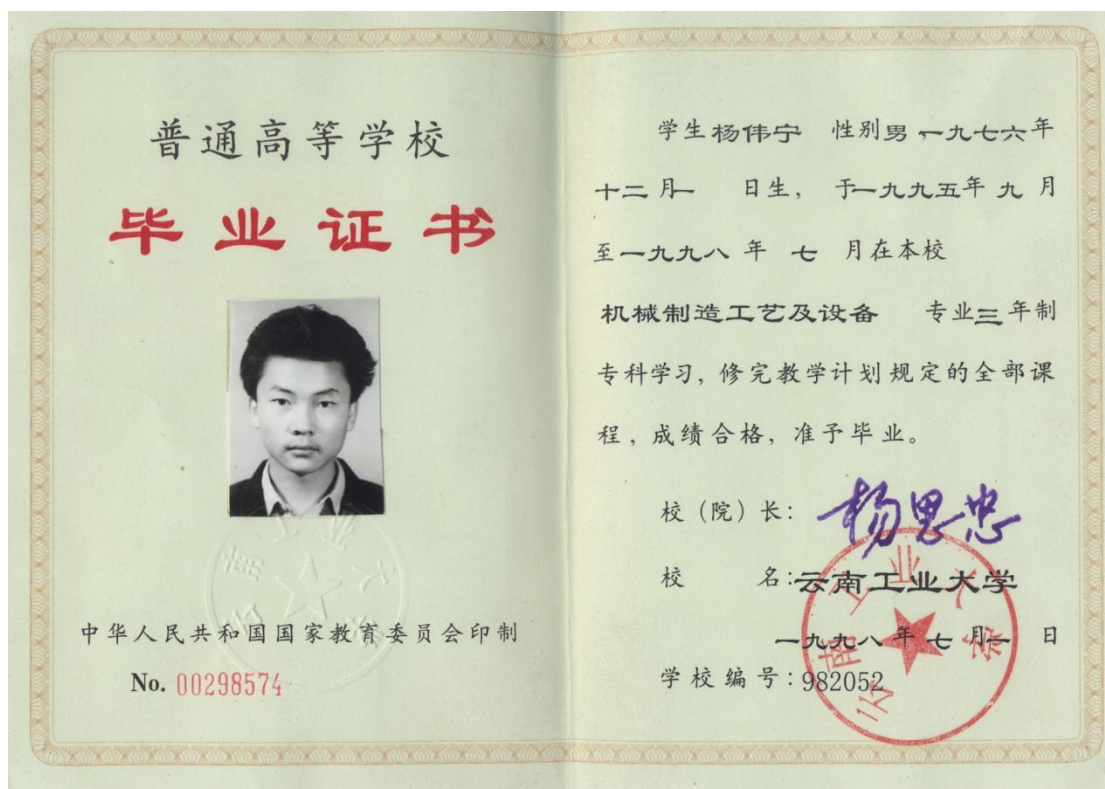 普通高等学校
毕业证书
中华人民共和国国家教育委员会印制
No. 00298574
学生杨伟宁 性别男,一九七六年
十二月一 日生, 于一九九五年九月
至一九九八年 七 月在本校
机械制造工艺及设备 专业三年制
专科学习, 修完教学计划规定的全部课
程, 成绩合格, 准予毕业。
校(院)长: 杨思忠
校 名:云南工业大学
一九九八年七月一 日
学校编号:982052
云南工业大学
云南工业大学